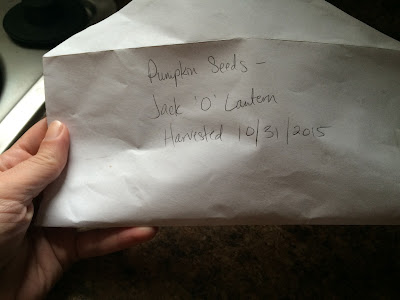 Pumpkin Seeds -
Jack 'O' Lantern
Harvested 10/31/2015